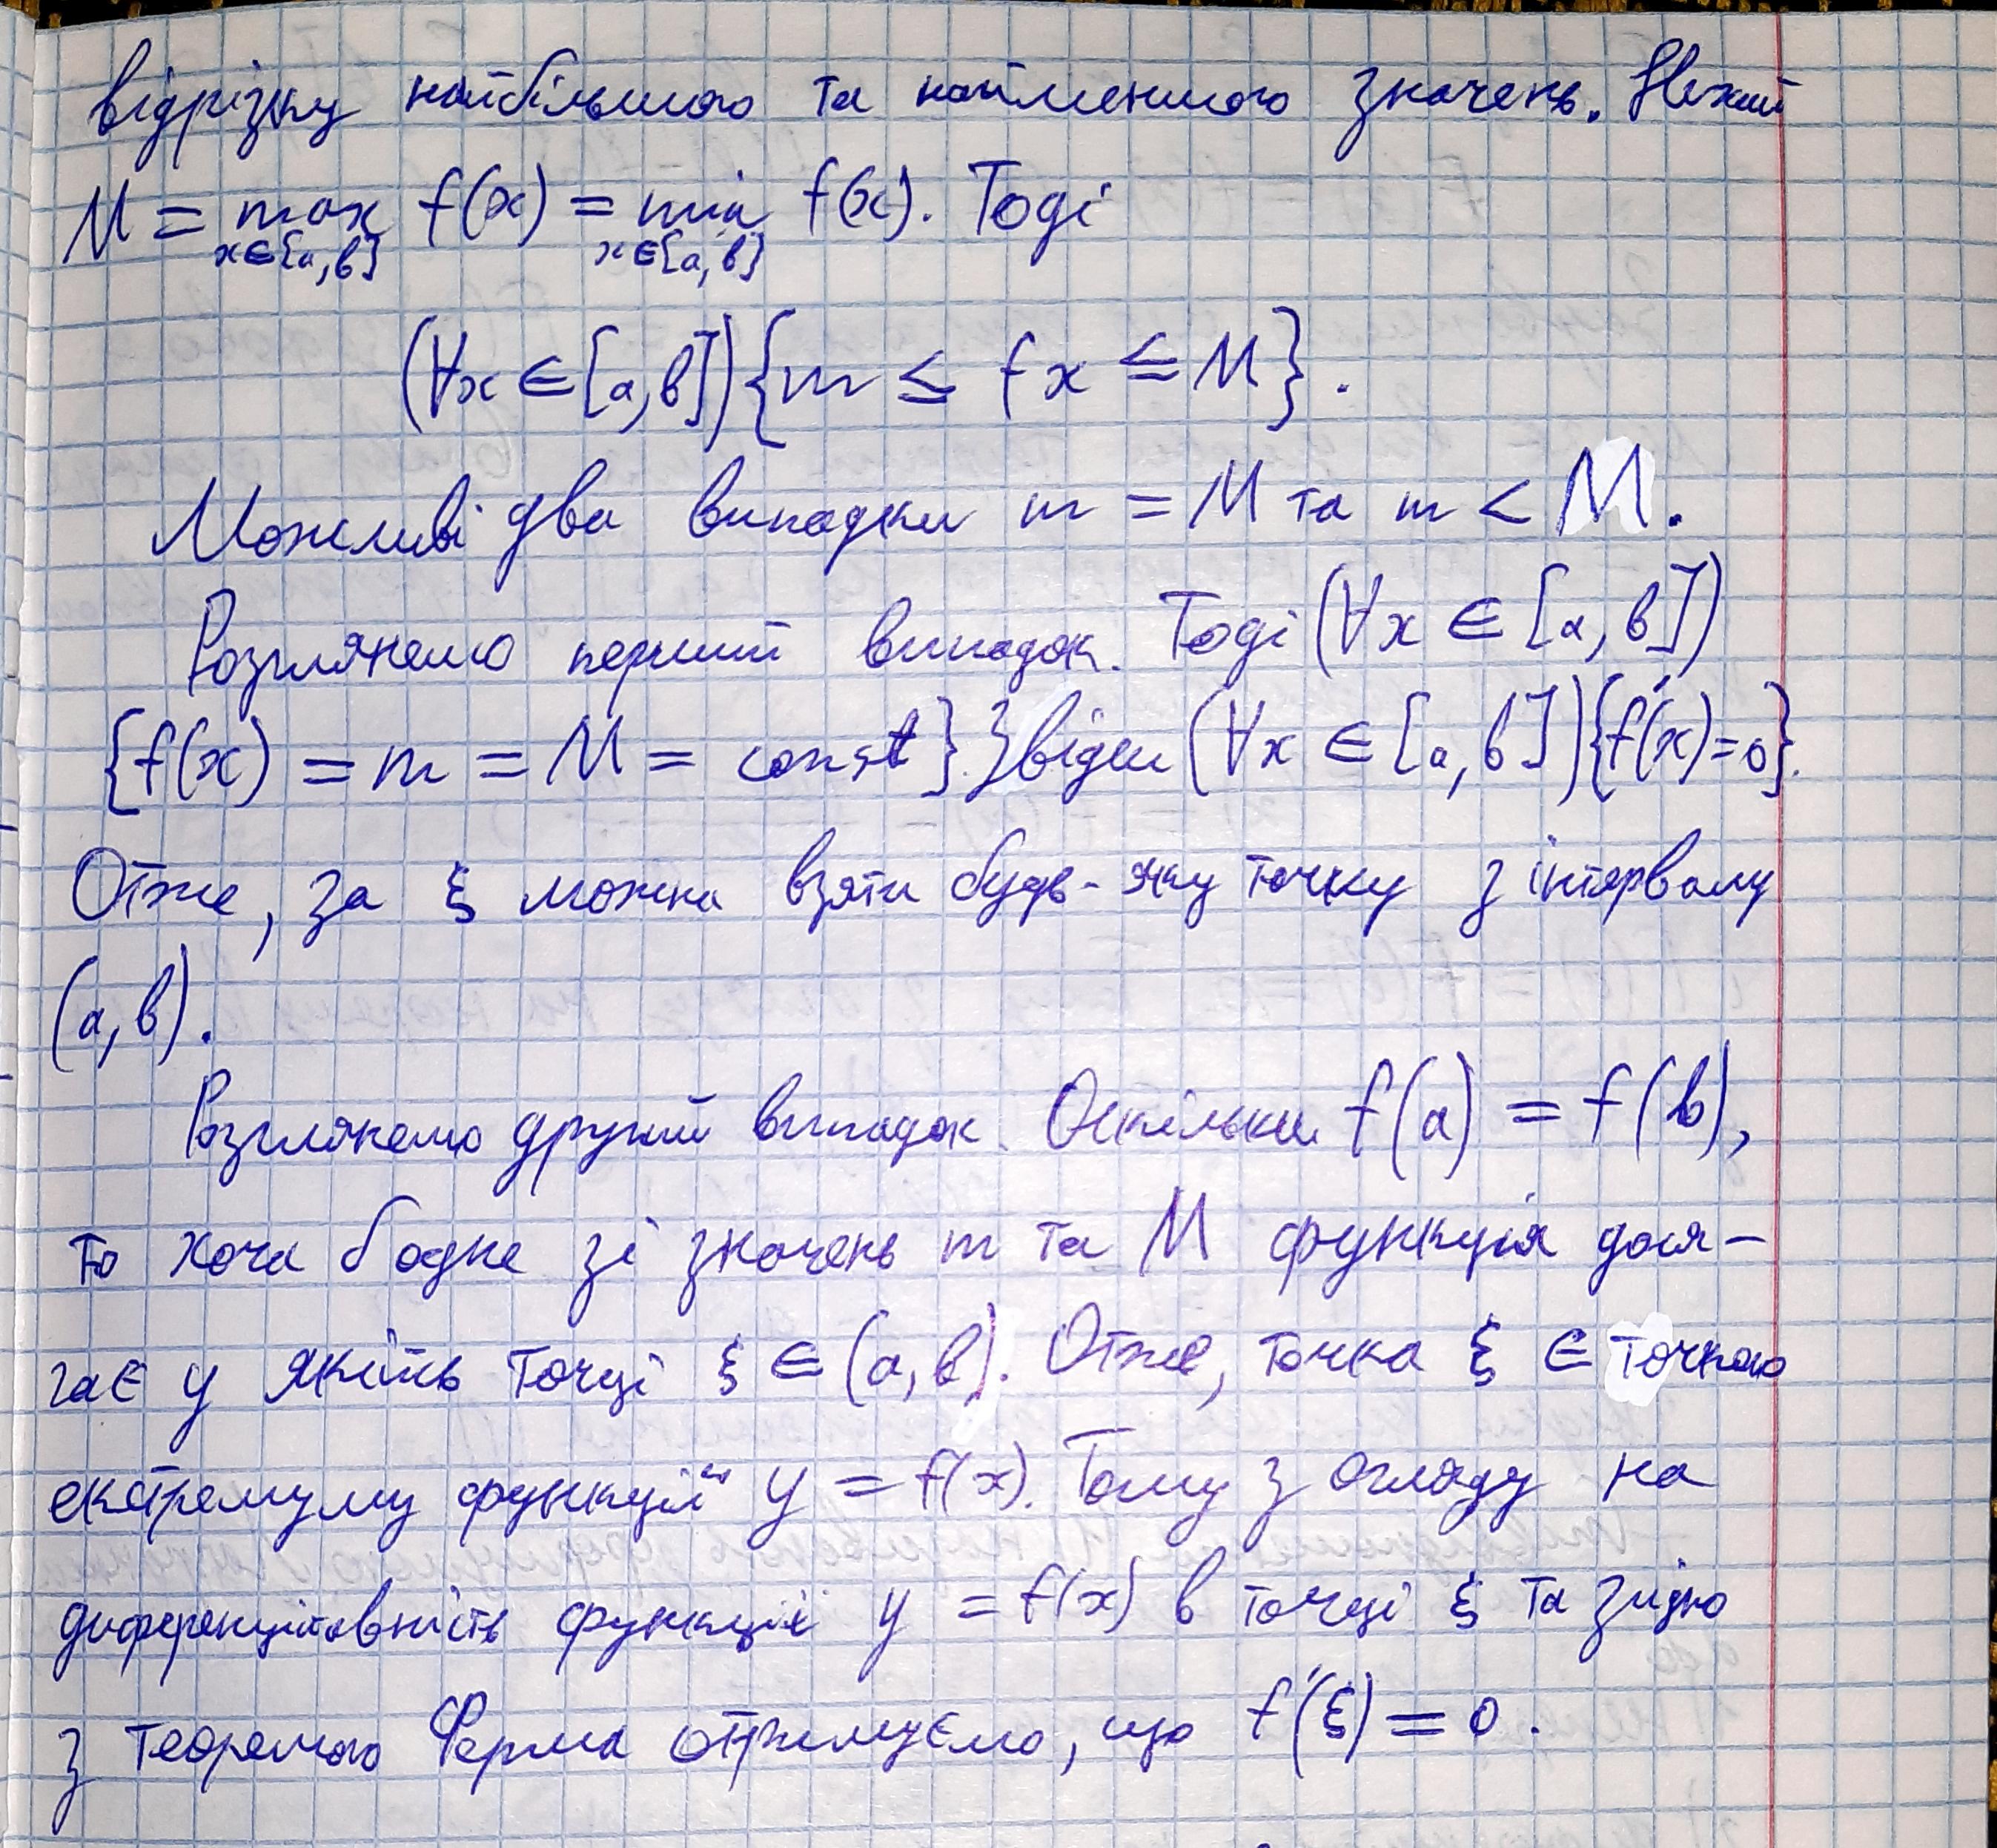 відрізку найбільшого та найменшого значень. Нехай
M = max f(x) = min f(x). Тоді
x∈[a,b] x∈[a,b]
(∀x ∈ [a,b]){m ≤ fx ≤ M}.
Можливі два випадки m = M та m < M.
Розглянемо перший випадок. Тоді (∀x ∈ [a,b])
{f(x) = m = M = const}. Звідси (∀x ∈ [a,b]){f'(x)=0}.
Отже, за ξ можна взяти будь-яку точку з інтервалу
(a,b).
Розглянемо другий випадок. Оскільки f(a) = f(b),
то хоча б одне зі значень m та M функція дося-
гає у якійсь точці ξ ∈ (a,b). Отже, точка ξ є точкою
екстремуму функції y = f(x). Тому з огляду на
диференційовність функції y = f(x) в точці ξ та згідно
з теоремою Ферма отримуємо, що f'(ξ) = 0.